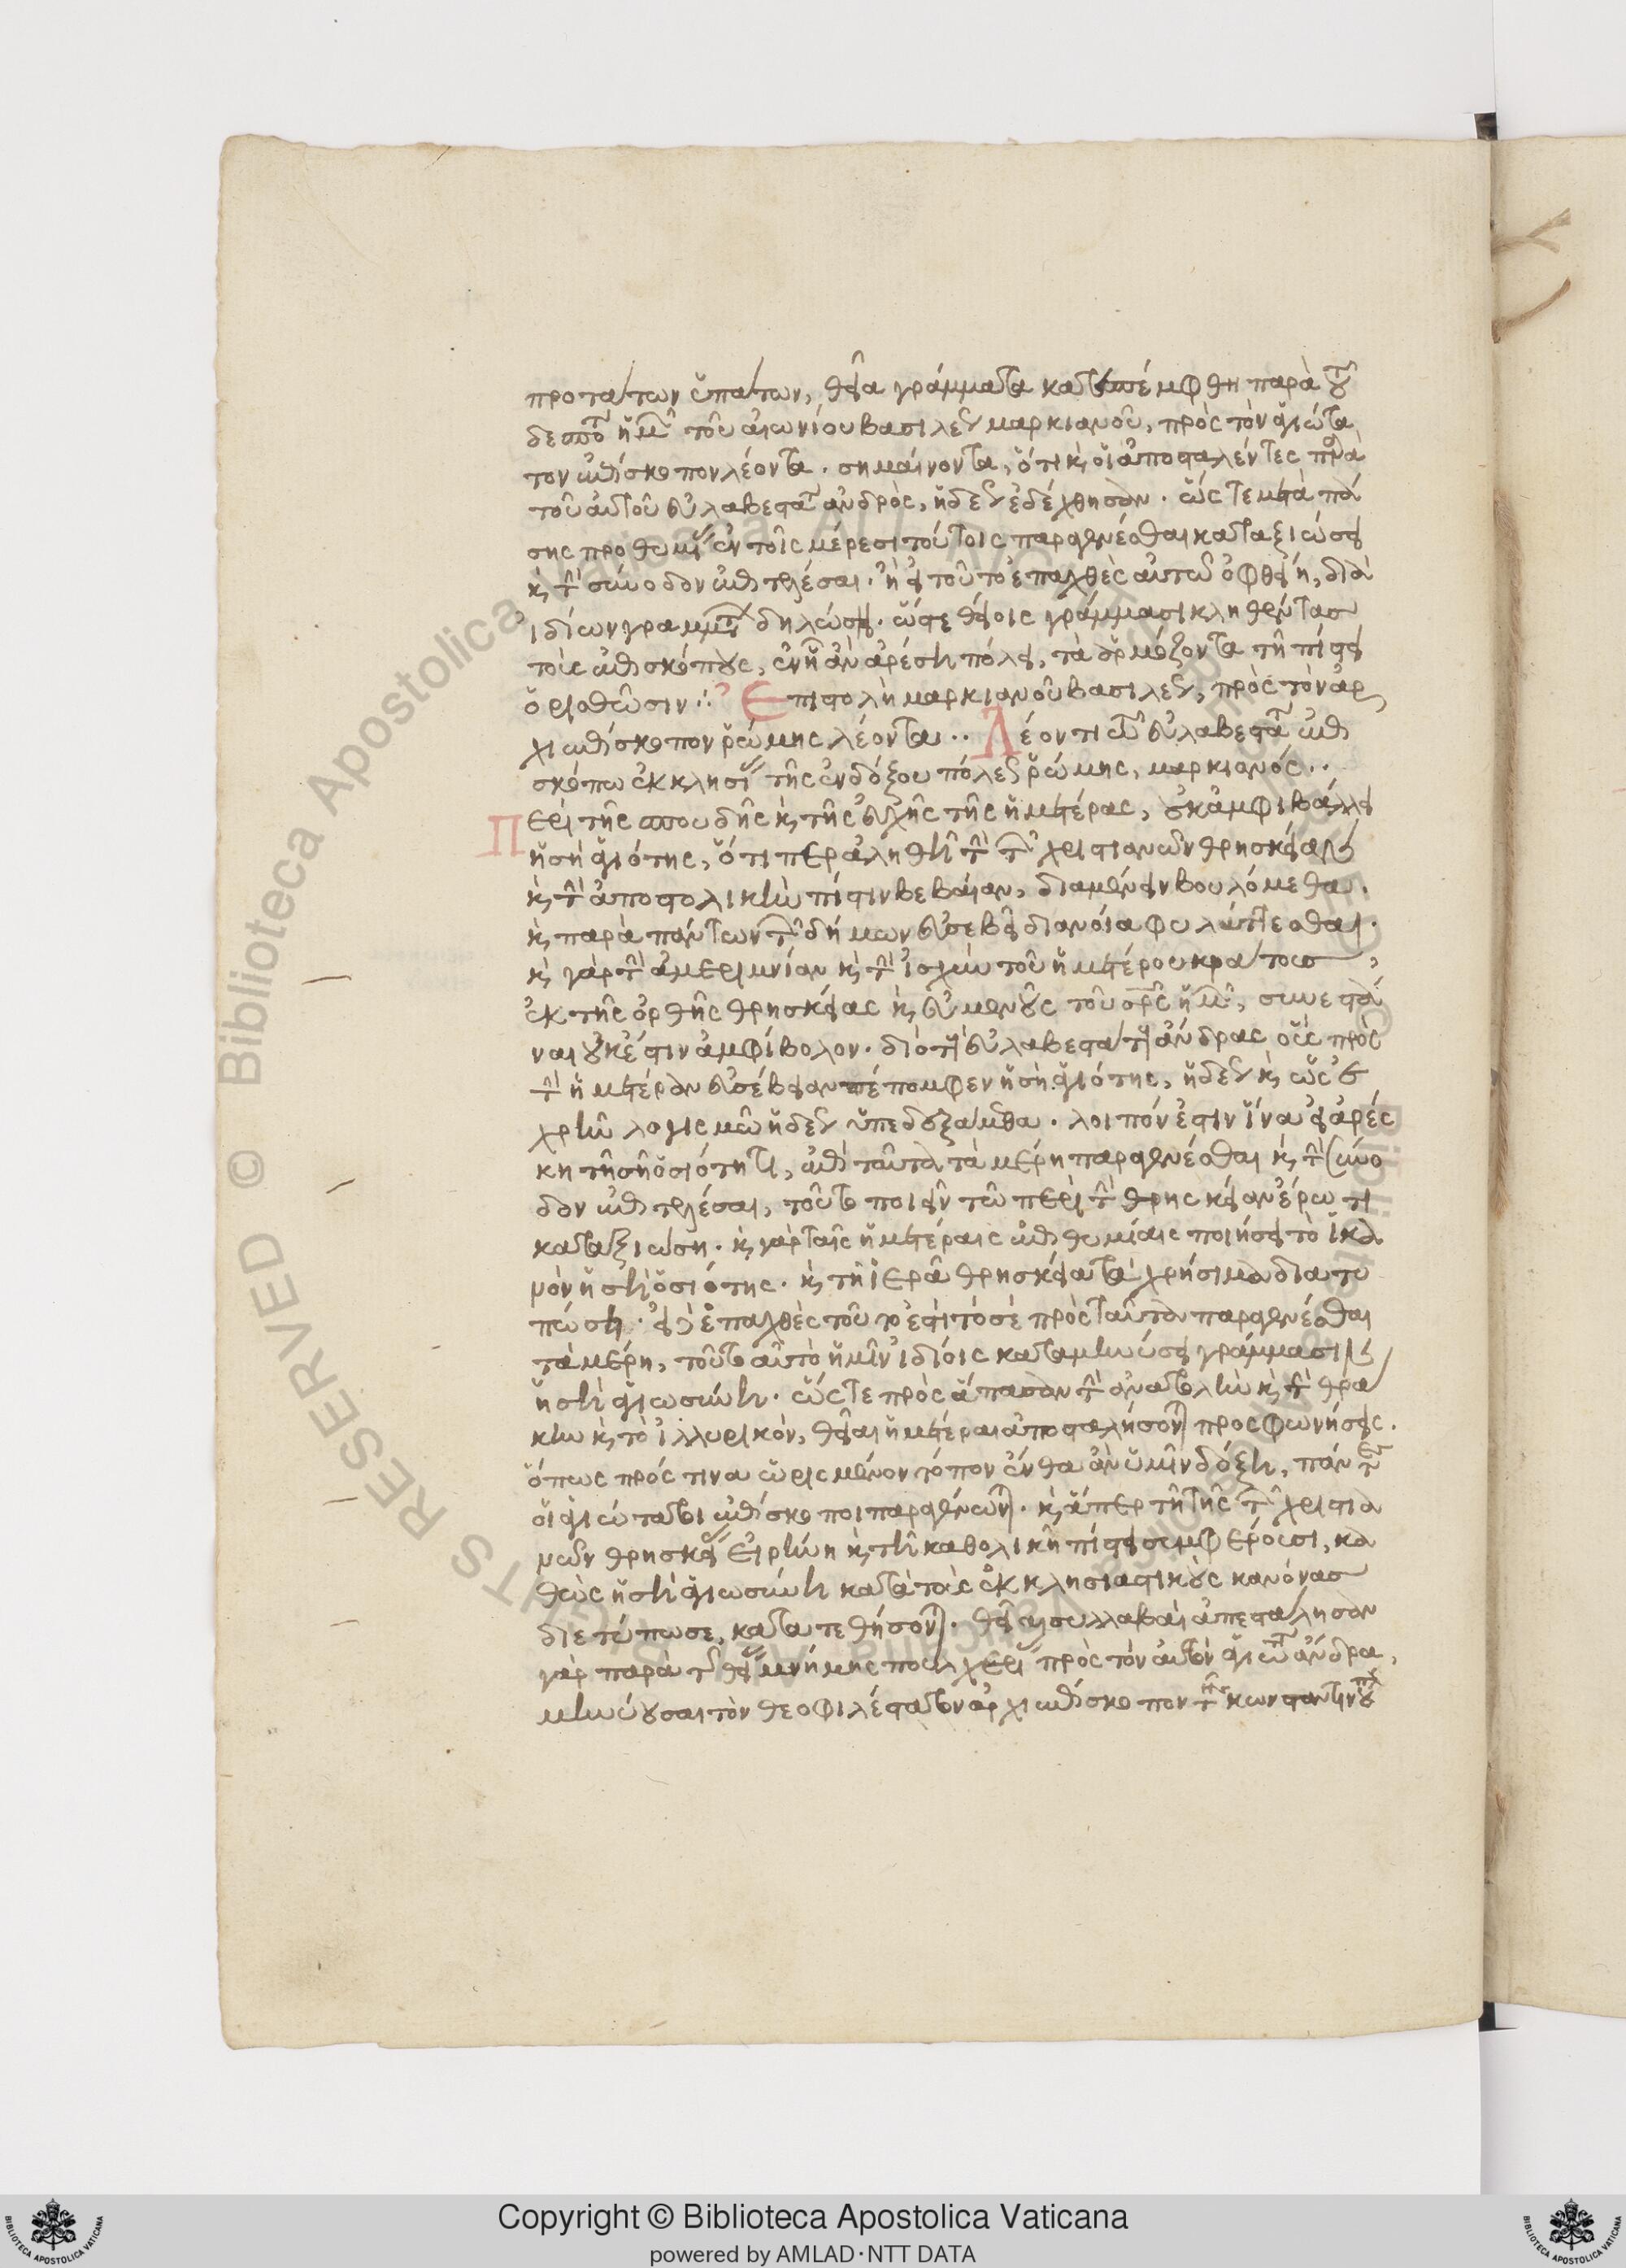 προτάτων ὑπάτων, θεῖα γράμματα κατεπέμφθη παρὰ τοῦ
δεσπότου ἡμῶν τοῦ αἰωνίου βασιλέως μαρκιανοῦ, πρὸς τὸν ἁγιώτα
τον ἐπίσκοπον λέοντα. σημαίνοντα, ὅτι καὶ οἱ ἀποσταλέντες παρὰ
τοῦ αὐτοῦ εὐλαβεστάτου ἀνδρὸς, ἡδέως ἐδέχθησαν. ὥστε μετὰ πά
σης προθυμίας ἐν τοῖς μέρεσι τούτοις παραγενέσθαι καταξιώσει
καὶ τὴν σύνοδον ἐπιτελέσαι. ἢ εἰ τοῦτο ἐπαχθὲς αὐτῶ ὀφθείη, διὰ
ἰδίων γραμμάτων δηλώσει. ὥστε θείοις γράμμασι κληθέντας
τοὺς ἐπισκόπους, ἐν ᾗ ἂν ἀρέσῃ πόλει, τὰ ἁρμόζοντα τῆ πίστει
ὁρισθῶσιν ∴ Ἐπιστολὴ μαρκιανοῦ βασιλέως, πρὸς τὸν ἀρ
χιεπίσκοπον ῥώμης λέοντα .. Λέοντι τῶ εὐλαβεστάτω ἐπι
σκόπω ἐκκλησίας τῆς ἐνδόξου πόλεως ῥώμης, μαρκιανός ..
Περὶ τῆς σπουδῆς καὶ τῆς εὐχῆς τῆς ἡμετέρας, οὐκ ἀμφιβάλλει
ἡ σὴ ἁγιότης, ὅτιπερ ἀληθῆ τὴν τῶν χριστιανῶν θρησκείαν
καὶ τὴν ἀποστολικὴν πίστιν βεβαίαν, διαμένειν βουλόμεθα.
καὶ παρὰ πάντων τῶν δήμων εὐσεβεῖ διανοία φυλάττεσθαι.
καὶ γὰρ τὴν ἀμεριμνίαν καὶ τὴν ἰσχὺν τοῦ ἡμετέρου κράτους,
ἐκ τῆς ὀρθῆς θρησκείας καὶ εὐμενοῦς τοῦ σρς ἡμῶν, συνεστά
ναι οὐκ ἔστιν ἀμφίβολον. διὸ τοὺς εὐλαβεστάτους ἄνδρας οὓς πρὸς
τὴν ἡμετέραν εὐσέβειαν πέπομφεν ἡ σὴ ἁγιότης, ἡδέως καὶ ὡς ἐ
χρῆν λογισμῶ ἡδέως ὑπεδεξάμεθα. λοιπόν ἐστιν ἵνα εἰ ἀρέσ
κη τῆ σῆ ὁσιότητι, ἐπὶ ταῦτα τὰ μέρη παραγενέσθαι καὶ τὴν σύνο
δον ἐπιτελέσαι, τοῦτο ποιεῖν τῶ περὶ τὴν θρησκείαν ἔρωτι
καταξιώση. καὶ γὰρ ταῖς ἡμετέραις ἐπιθυμίαις ποιήσει τὸ ἱκα
νὸν ἡ σὴ ὁσιότης. καὶ τῆ ἱερᾶ θρησκεία τὰ χρήσιμα διατυ
πώση. εἰ δὲ ἐπαχθὲς τοῦτο ἐστὶ τό σὲ πρὸς ταῦτα παραγενέσθαι
τὰ μέρη, τοῦτο αὐτὸ ἡμῖν ἰδίοις καταμηνύσει γράμμασιν
ἡ σὴ ἁγιωσύνη. ὥστε πρὸς ἅπασαν τὴν ἀνατολὴν καὶ τὴν θρά
κην καὶ τὸ ἰλλυρικόν, θεῖαι ἡμέτεραι ἀποσταλήσονται προσφωνήσεις.
ὅπως πρός τινα ὡρισμένον τόπον ἔνθα ἂν ὑμῖν δόξη, πάντες
οἱ ἁγιώτατοι ἐπίσκοποι παραγένωνται. καὶ ἅπερ τῆ τῆς τῶν χριστια
νῶν θρησκείας εἰρήνη καὶ τῆ καθολικῆ πίστει συμφέρουσι, κα
θὼς ἡ σὴ ἁγιωσύνη κατὰ τοὺς ἐκκλησιαστικοὺς κανόνας
διετύπωσε, κατατεθήσονται. θεῖαι συλλαβαὶ ἀπεστάλησαν
γὰρ παρὰ τῆς θείας μνήμης πουλχερίας πρὸς τὸν αὐτὸν ἁγιώτατον ἄνδρα,
μηνύουσαι τὸν θεοφιλέστατον ἀρχιεπίσκοπον τῆς κωνσταντινουπόλεως